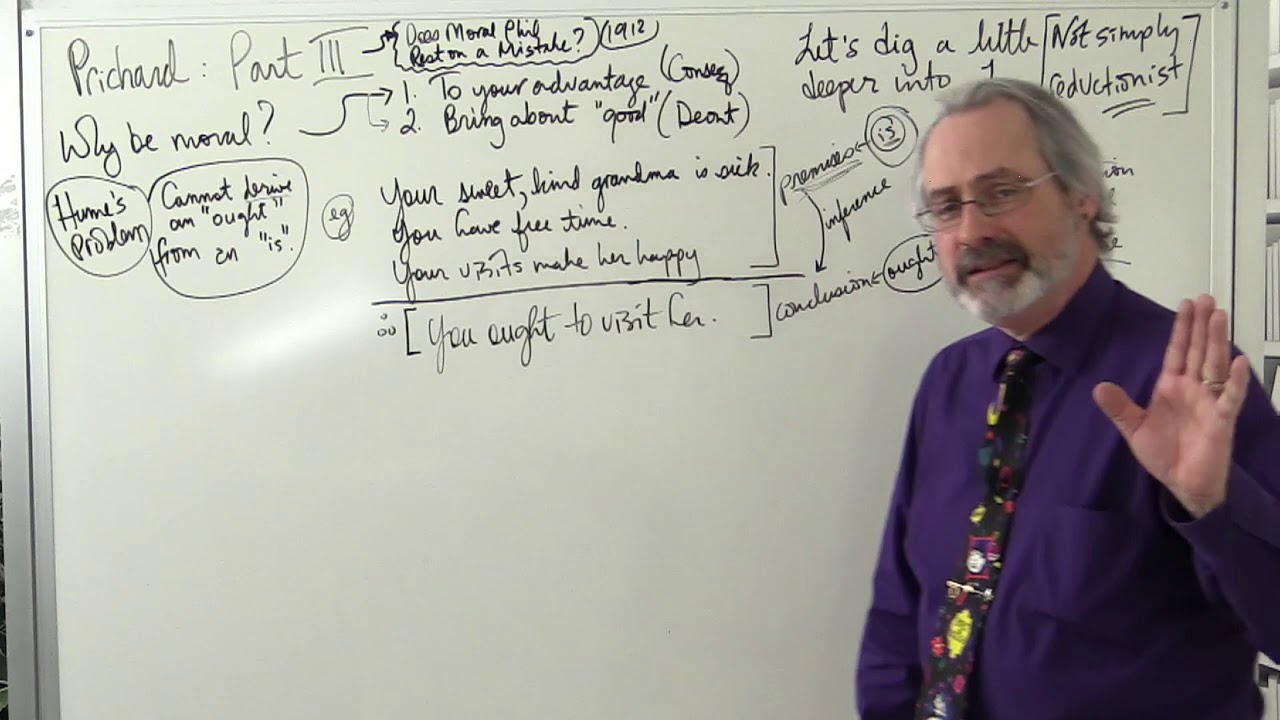 Prichard: Part III
Does Moral Phil
Rest on a Mistake?
(1912)
Why be moral?
1. To your advantage (Conseq)
2. Bring about "good" (Deont)
Let's dig a little
deeper into
Not simply
reductionist
Hume's
Problem
Cannot derive
an "ought"
from an "is".
eg
Your sweet, kind grandma is sick.
You have free time.
Your visits make her happy
∴ [You ought to visit her.]
premises
is
inference
conclusion
ought